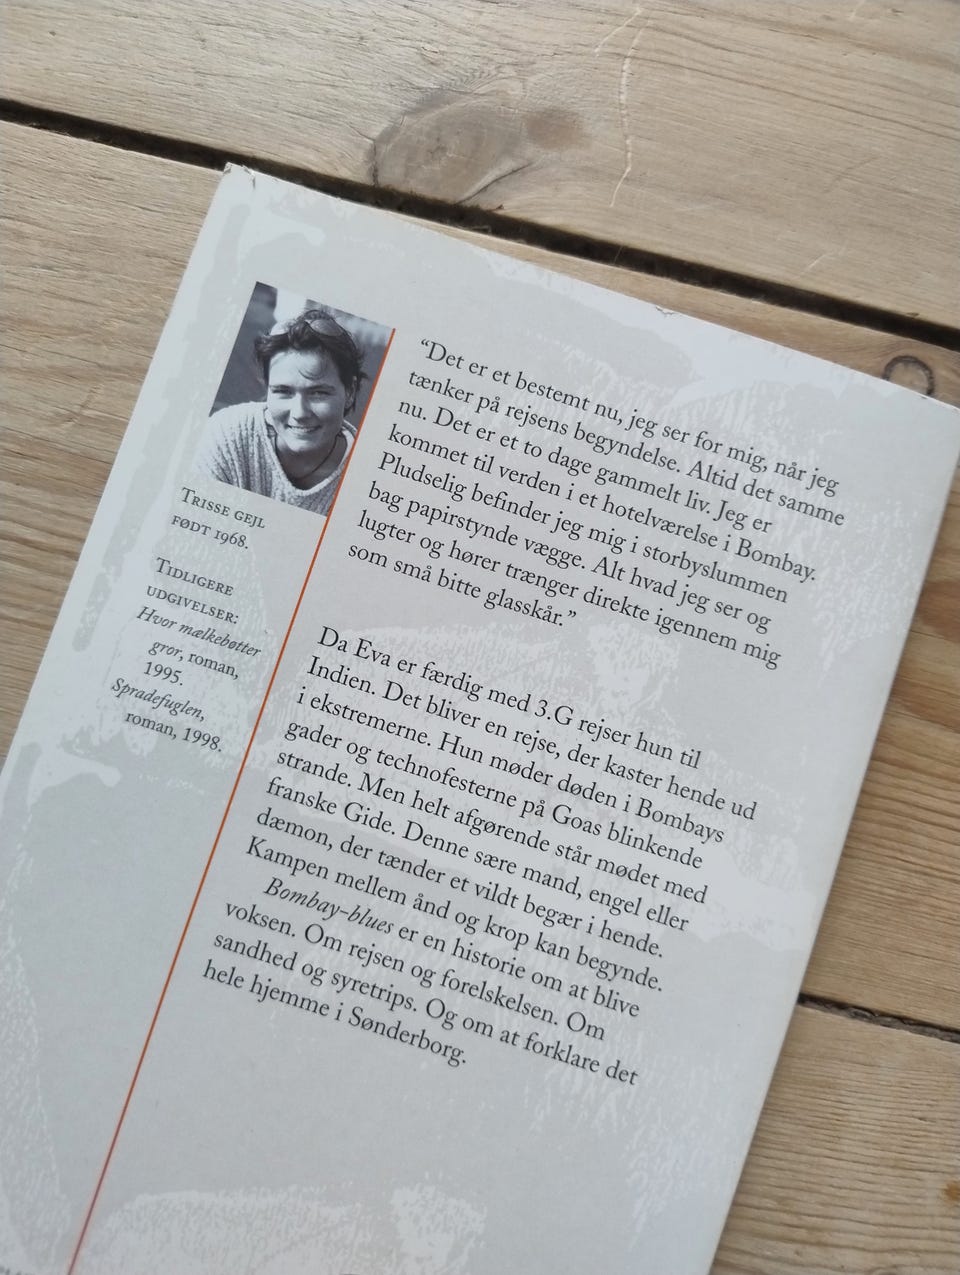 TRISSE GEJL
FØDT 1968.
TIDLIGERE
UDGIVELSER:
Hvor mælkebøtter
gror, roman,
1995.
Spradefuglen,
roman, 1998.
“Det er et bestemt nu, jeg ser for mig, når jeg
tænker på rejsens begyndelse. Altid det samme
nu. Det er et to dage gammelt liv. Jeg er
kommet til verden i et hotelværelse i Bombay.
Pludselig befinder jeg mig i storbyslummen
bag papirstynde vægge. Alt hvad jeg ser og
lugter og hører trænger direkte igennem mig
som små bitte glasskår.”
Da Eva er færdig med 3.G rejser hun til
Indien. Det bliver en rejse, der kaster hende ud
i ekstremerne. Hun møder døden i Bombays
gader og technofesterne på Goas blinkende
strande. Men helt afgørende står mødet med
franske Gide. Denne sære mand, engel eller
dæmon, der tænder et vildt begær i hende.
Kampen mellem ånd og krop kan begynde.
Bombay-blues er en historie om at blive
voksen. Om rejsen og forelskelsen. Om
sandhed og syretrips. Og om at forklare det
hele hjemme i Sønderborg.